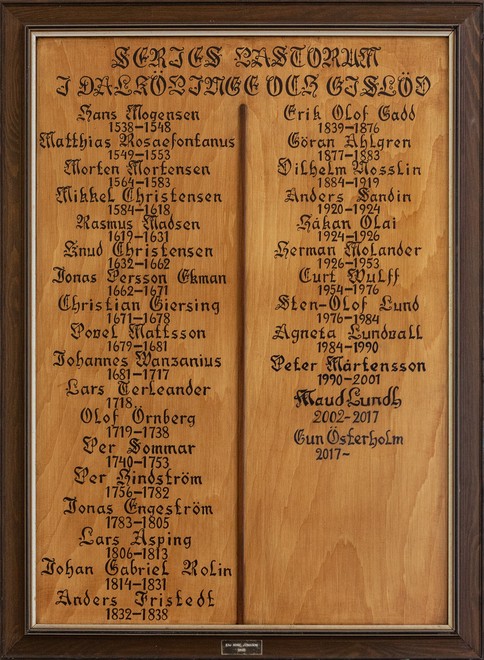 SERIES PASTORUM
I DALKÖPINGE OCH GISLÖV
Hans Mogensen
1538-1548
Matthias Rosaefontanus
1549-1553
Morten Mortensen
1564-1583
Mikkel Christensen
1584-1618
Rasmus Madsen
1619-1631
Knud Christensen
1632-1662
Jonas Persson Ekman
1662-1671
Christian Giersing
1671-1678
Povel Mattsson
1679-1681
Johannes Wanzanius
1681-1717
Lars Terleander
1718
Olof Örnberg
1719-1738
Per Sommar
1740-1753
Per Hindström
1756-1782
Jonas Engeström
1783-1805
Lars Asping
1806-1813
Johan Gabriel Rolin
1814-1831
Anders Fristedt
1832-1838
Erik Olof Gadd
1839-1876
Göran Ahlgren
1877-1883
Vilhelm Mosslin
1884-1919
Anders Sandin
1920-1924
Håkan Olai
1924-1926
Herman Molander
1926-1953
Curt Wulff
1954-1976
Sten-Olof Lund
1976-1984
Agneta Lundvall
1984-1990
Peter Mårtensson
1990-2001
Maud Lundh
2002-2017
Gun Österholm
2017-